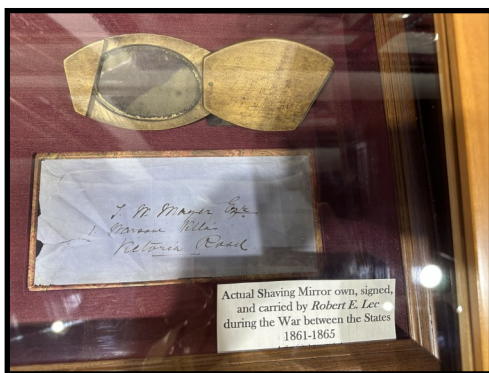 T. W. Mayer Esqre
1. Villas
Victoria Road
Actual Shaving Mirror own, signed,
and carried by Robert E. Lee
during the War between the States
1861-1865